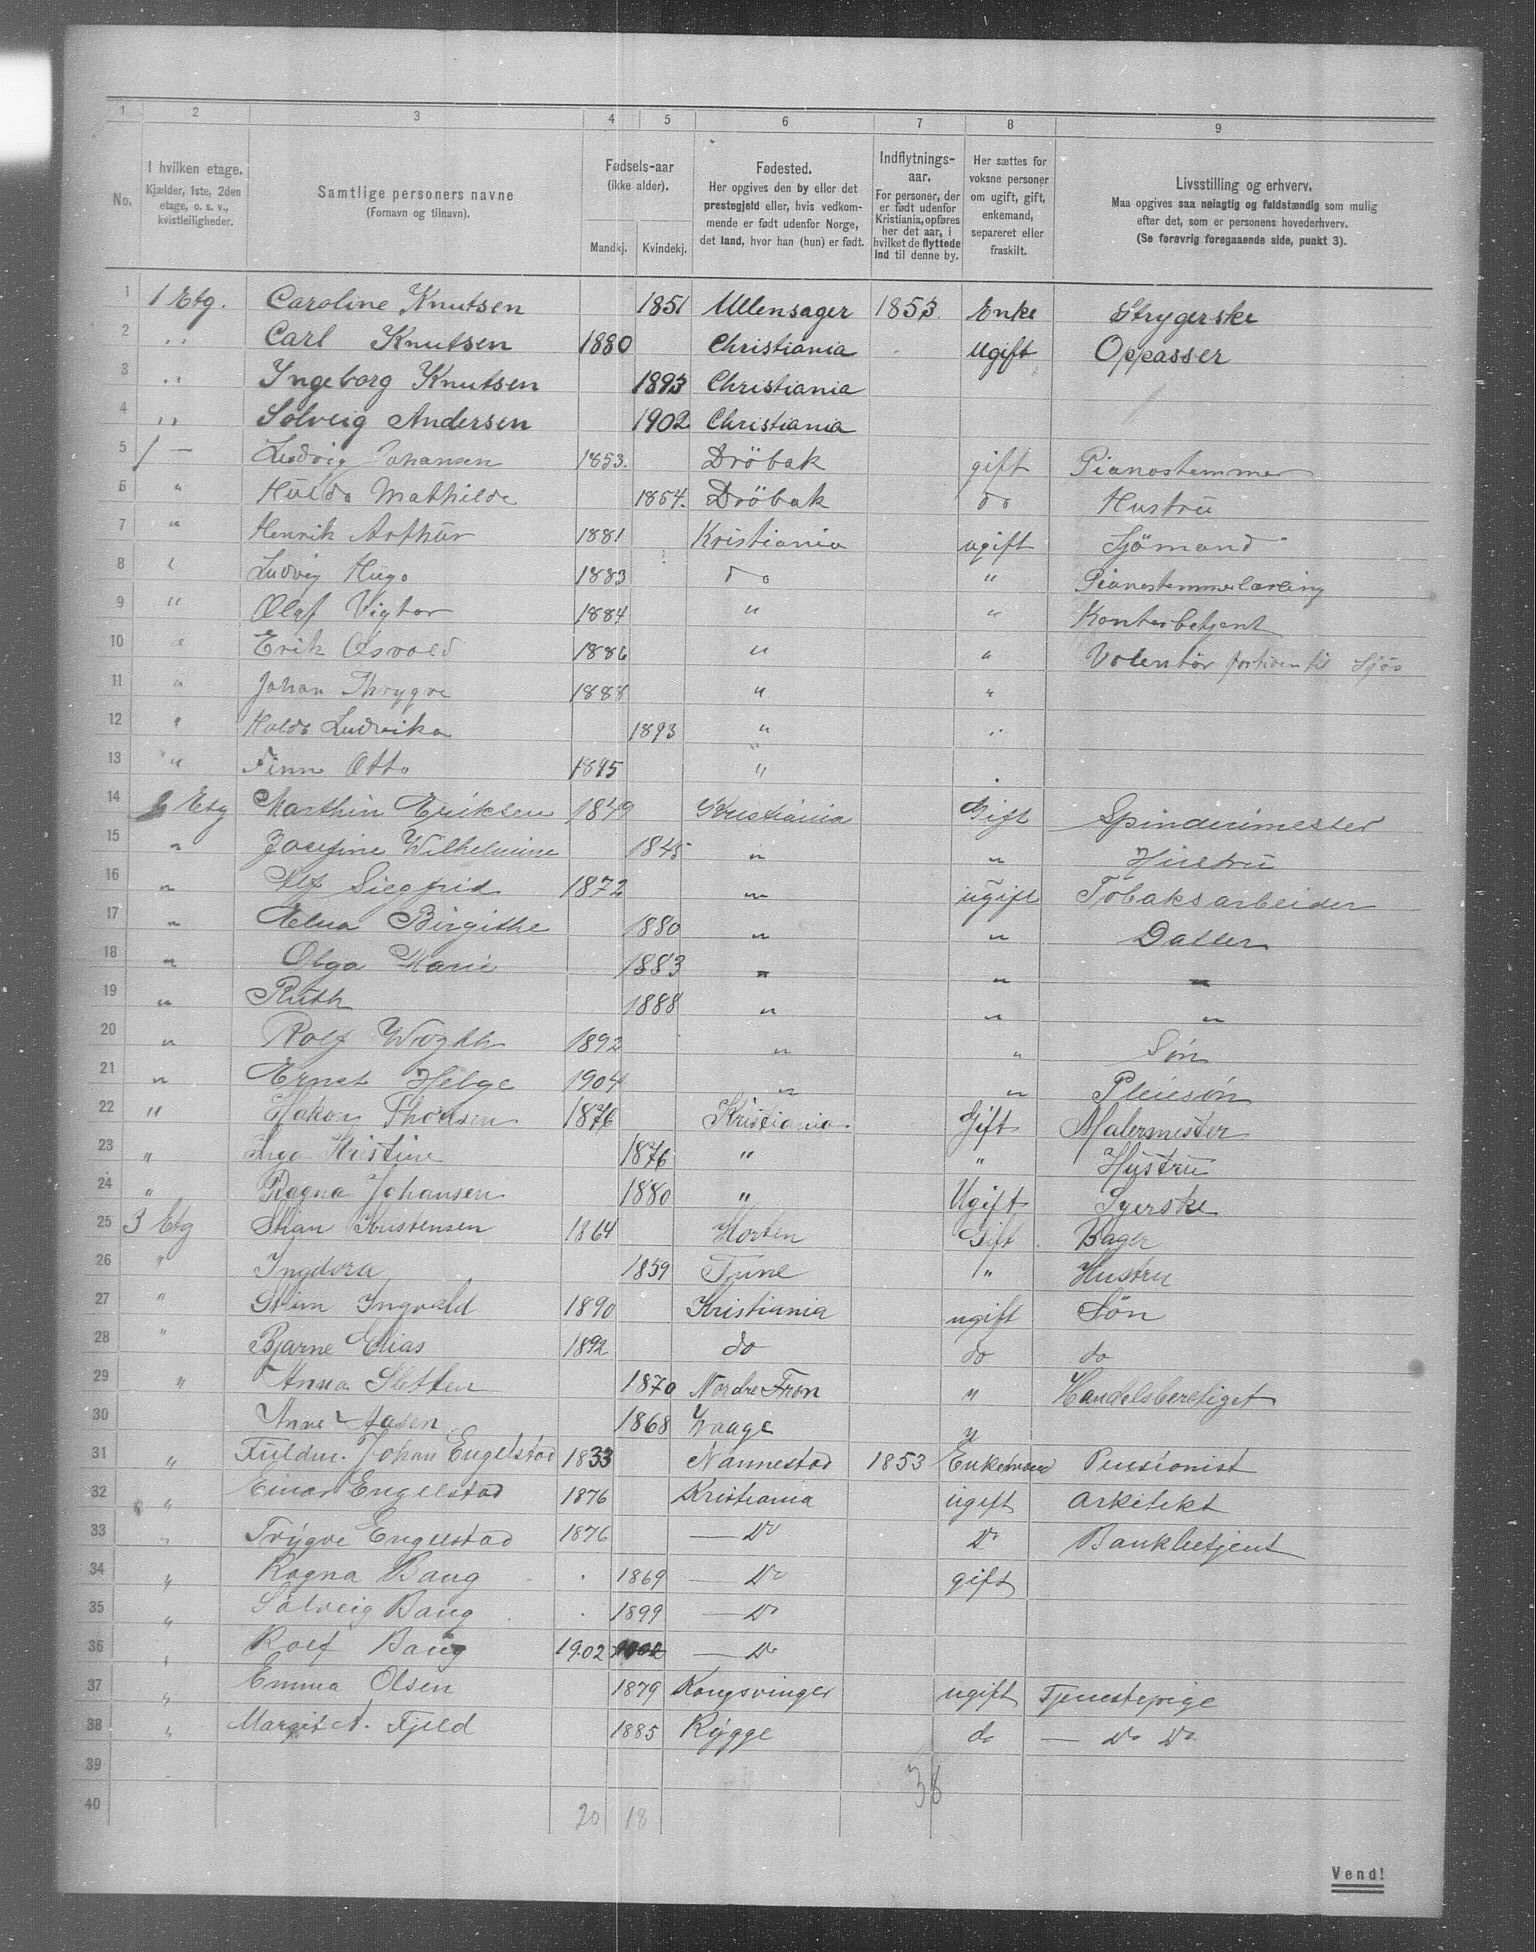 1 2 3 4 5 6 7 8 9
No.
I hvilken etage.
Kjælder, 1ste, 2den
etage, o. s. v.,
kvistleiligheder.
Samtlige personers navne
(Fornavn og tilnavn).
Fødsels-aar
(ikke alder).
Mandkj. Kvindekj.
Fødested.
Her opgives den by eller det
prestegjeld eller, hvis vedkom-
mende er født udenfor Norge,
det land, hvor han (hun) er født.
Indflytnings-
aar.
For personer, der
er født udenfor
Kristiania, opføres
her det aar, i
hvilket de flyttede
ind til denne by.
Her sættes for
voksne personer
om ugift, gift,
enkemand,
separeret eller
fraskilt.
Livsstilling og erhverv.
Maa opgives saa nøiagtig og fuldstændig som mulig
efter det, som er personens hovederhverv.
(Se forøvrig foregaaende side, punkt 3).
1 1 Etg. Caroline Knutsen 1851 Ullensager 1853. Enke Strygerske
2 " Carl Knutsen 1880 Christiania Ugift Oppasser
3 " Ingeborg Knutsen 1893 Christiania
4 " Solveig Andersen 1902 Christiania
5 1 — Ludvig Johansen 1853. Dröbak gift Pianostemmer
6 " Hulda Mathilde 1854. Dröbak do Hustru
7 " Henrik Arthur 1881 Kristiania ugift Sjömand
8 " Ludvig Hugo 1883 do " Pianostemmerlærling
9 " Olaf Vigtor 1884 " " Kontorbetjent
10 " Erik Osvald 1886 " " Volentör fortiden til Sjös
11 " Johan Thrygve 1888 " "
12 " Hulda Ludvika 1893 " "
13 " Finn Otto 1895 "
14 2 Etg Marthin Eriksen 1849 Kristiania Gift Spinderimester
15 " Josefine Wilhelmine 1845 " " Hustru
16 " Alf Siegfrid 1872 " ugift Tobaksarbeider
17 " Birgithe 1880 " " Datter
18 " Olga Marie 1883 " " "
19 " Ruth 1888 " " "
20 " Rolf 1892 " " Søn
21 " Ernst Helge 1904 " " Pleiesøn
22 " Hakon Thorsen 1876 Kristiania Gift Malermester
23 " Inga Kristine 1876 " " Hustru
24 " Ragna Johansen 1880 " Ugift Syerske
25 3 Etg Stian Kristensen 1864 Horten Gift Bager
26 " Ingdora 1859 Tune " Hustru
27 " Ingvald 1890 Kristiania ugift Søn
28 " Bjarne Elias 1892 do do do
29 " Anna Sletten 1870 Nordre Fron " Handelsberetiget
30 Anne Aasen 1868 Vaage "
31 " Fuldm. Johan Engelstad 1833 Nannestad 1853 Enkemand Pensionist
32 " Einar Engelstad 1876 Kristiania ugift Arkitekt
33 " Trygve Engelstad 1876 — Do Do Bankbetjent
34 " Ragna Baug 1869 — Do gift
35 " Solveig Baug 1899 — Do
36 " Rolf Baug 1902 — Do
37 " Emma Olsen 1879 Kongsvinger ugift Tjenestepige
38 " Margit A. Fjeld 1885 Rygge do — Do Do
39
40
20 18 38
Vend!